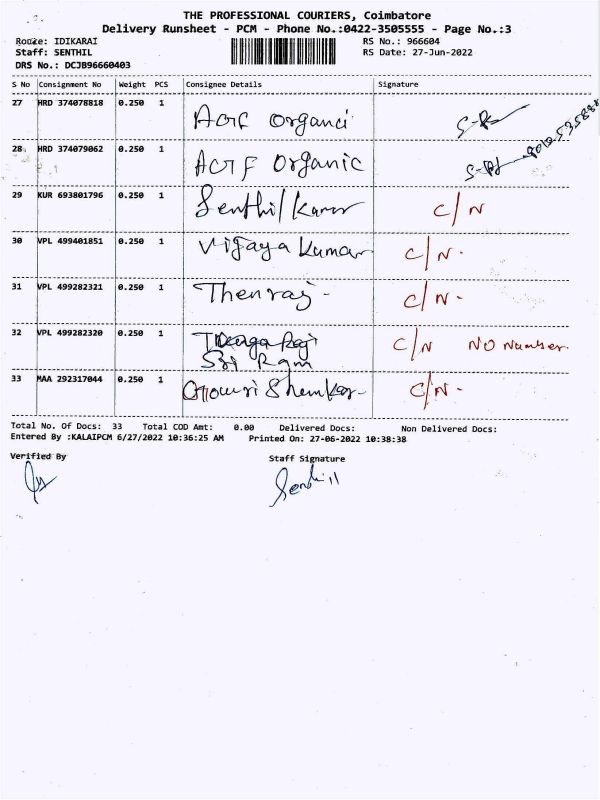 THE PROFESSIONAL COURIERS, Coimbatore
Delivery Runsheet - PCM - Phone No.:0422-3505555 - Page No.:3
Route: IDIKARAI RS No.: 966604
Staff: SENTHIL RS Date: 27-Jun-2022
DRS No.: DCJB96660403
S No Consignment No Weight PCS Consignee Details Signature
27 HRD 374078818 0.250 1 Organci
28 HRD 374079062 0.250 1 Organic
29 KUR 693801796 0.250 1 Senthil Kumar C/N
30 VPL 499401851 0.250 1 Vijaya Kumar C/N.
31 VPL 499282321 0.250 1 Thenraj - C/N.
32 VPL 499282320 0.250 1 C/N NO Number.
Sri Ram
33 MAA 292317044 0.250 1 Gowri Shenkar- C/N.
Total No. Of Docs: 33 Total COD Amt: 0.00 Delivered Docs: Non Delivered Docs:
Entered By :KALAIPCM 6/27/2022 10:36:25 AM Printed On: 27-06-2022 10:38:38
Verified By Staff Signature
Senthill